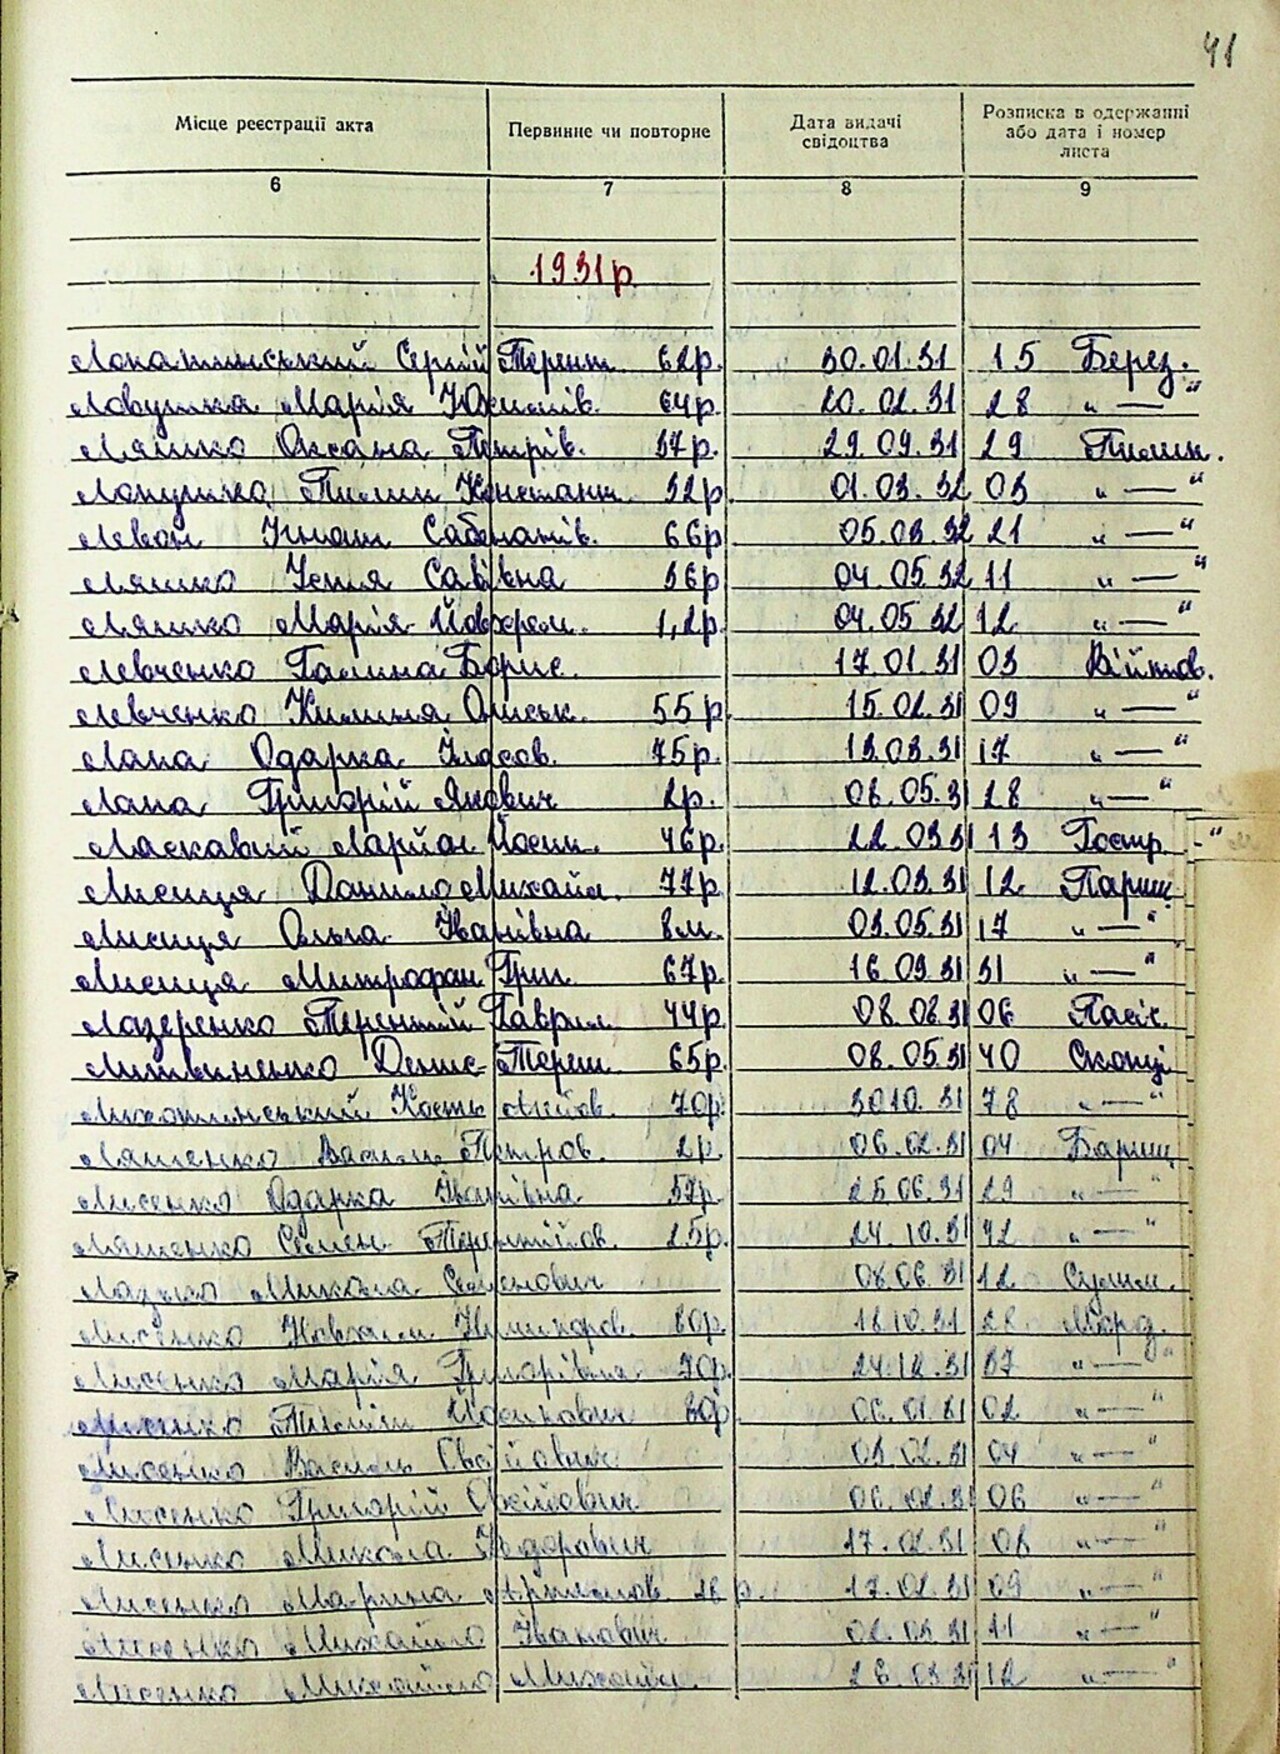 41
Місце реєстрації акта Первинне чи повторне Дата видачі свідоцтва Розписка в одержанні або дата і номер листа
6 7 8 9
1931р.
Лопатинський Сергій Терент. 62р. 30.01.31 15 Берез.
Ловушка Марія Юхимів. 64р. 20.02.31 28 „ — “
Ляшко Оксана Петрів. 37р. 29.09.31 29 Пилип.
Лопушко Пилип Констант. 32р. 01.03.32 03 „ — “
Левон Ігнат 66р 05.03.32 21 „ — “
Ляшко Устя Савівна 36р 04.05.32 11 „ — “
Ляшко Марія Йовхрем. 1,2р. 04.05.32 12 „ — “
Левченко Галина Борис. 17.01.31 03 Війтов.
Левченко Килина Ониськ. 55р. 15.02.31 09 „ — “
Лапа Одарка Власов. 75р. 13.03.31 17 „ — “
Лапа Григорій Якович 2р. 08.05.31 28 „ — “
Ласкавий Йосип. 46р. 22.03.31 13 Гостр. - “
Лисиця Данило Михайл. 77р. 12.03.31 12 Парищ.
Лисиця Ольга Іванівна 8м. 03.05.31 17 „ — “
Лисиця Митрофан Григ. 67р. 16.09.31 31 „ — “
Лазеренко Терентій Гаврил. 44р. 08.08.31 06 Пасіч.
Литвиненко Денис Тереш. 65р. 08.05.31 40 Скопц.
Лихотинський Кость 70р. 30.10.31 78 „ — “
Ляшенко Василь Петров. 2р. 06.02.31 04 Бариш.
Лисенко Одарка Іванівна 57р. 25.06.31 29 „ — “
Ляшенко Семен Терентійов. 25р. 24.10.31 42 „ — “
Лазько Микола Семенович 08.06.31 12
Лисенко 80р. 18.10.31 28
Лисенко Марія Григорівна 70р. 24.12.31 37 „ — “
Лисенко Йосипович 02 „ — “
Лисенко Василь 03.02.31 04 „ — “
Лисенко Григорій Овсійович 06.02.31 06 „ — “
Лисенко Микола 17.02.31 08 „ — “
Лисенко Марина р. 17.02.31 09 „ — “
Лисенко Михайло Іванович 02.03.31 11 „ — “
Лисенко Михайло Михайл. 26.03.31 12 „ — “